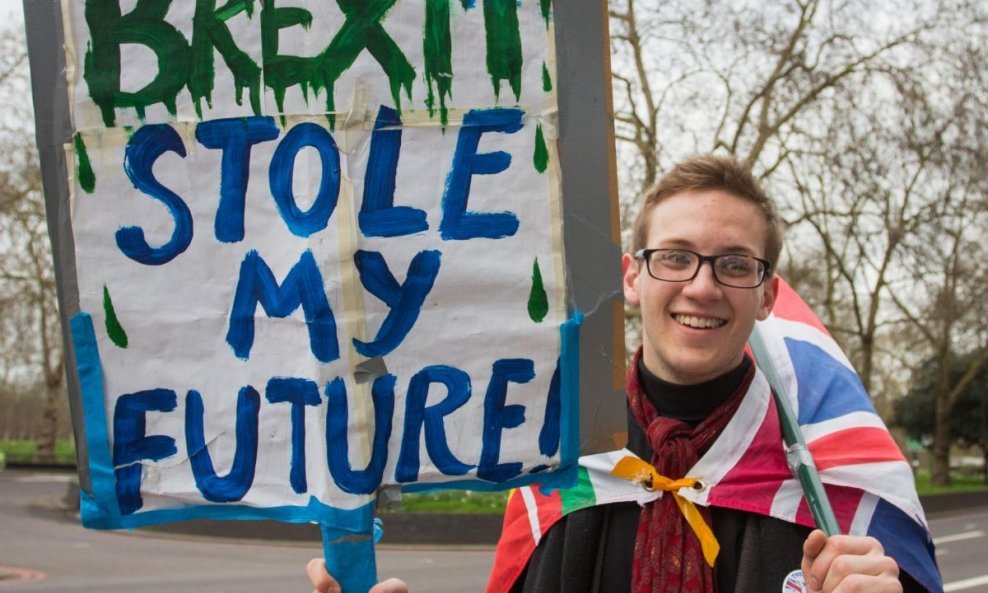 BREXIT
STOLE
MY
FUTURE!